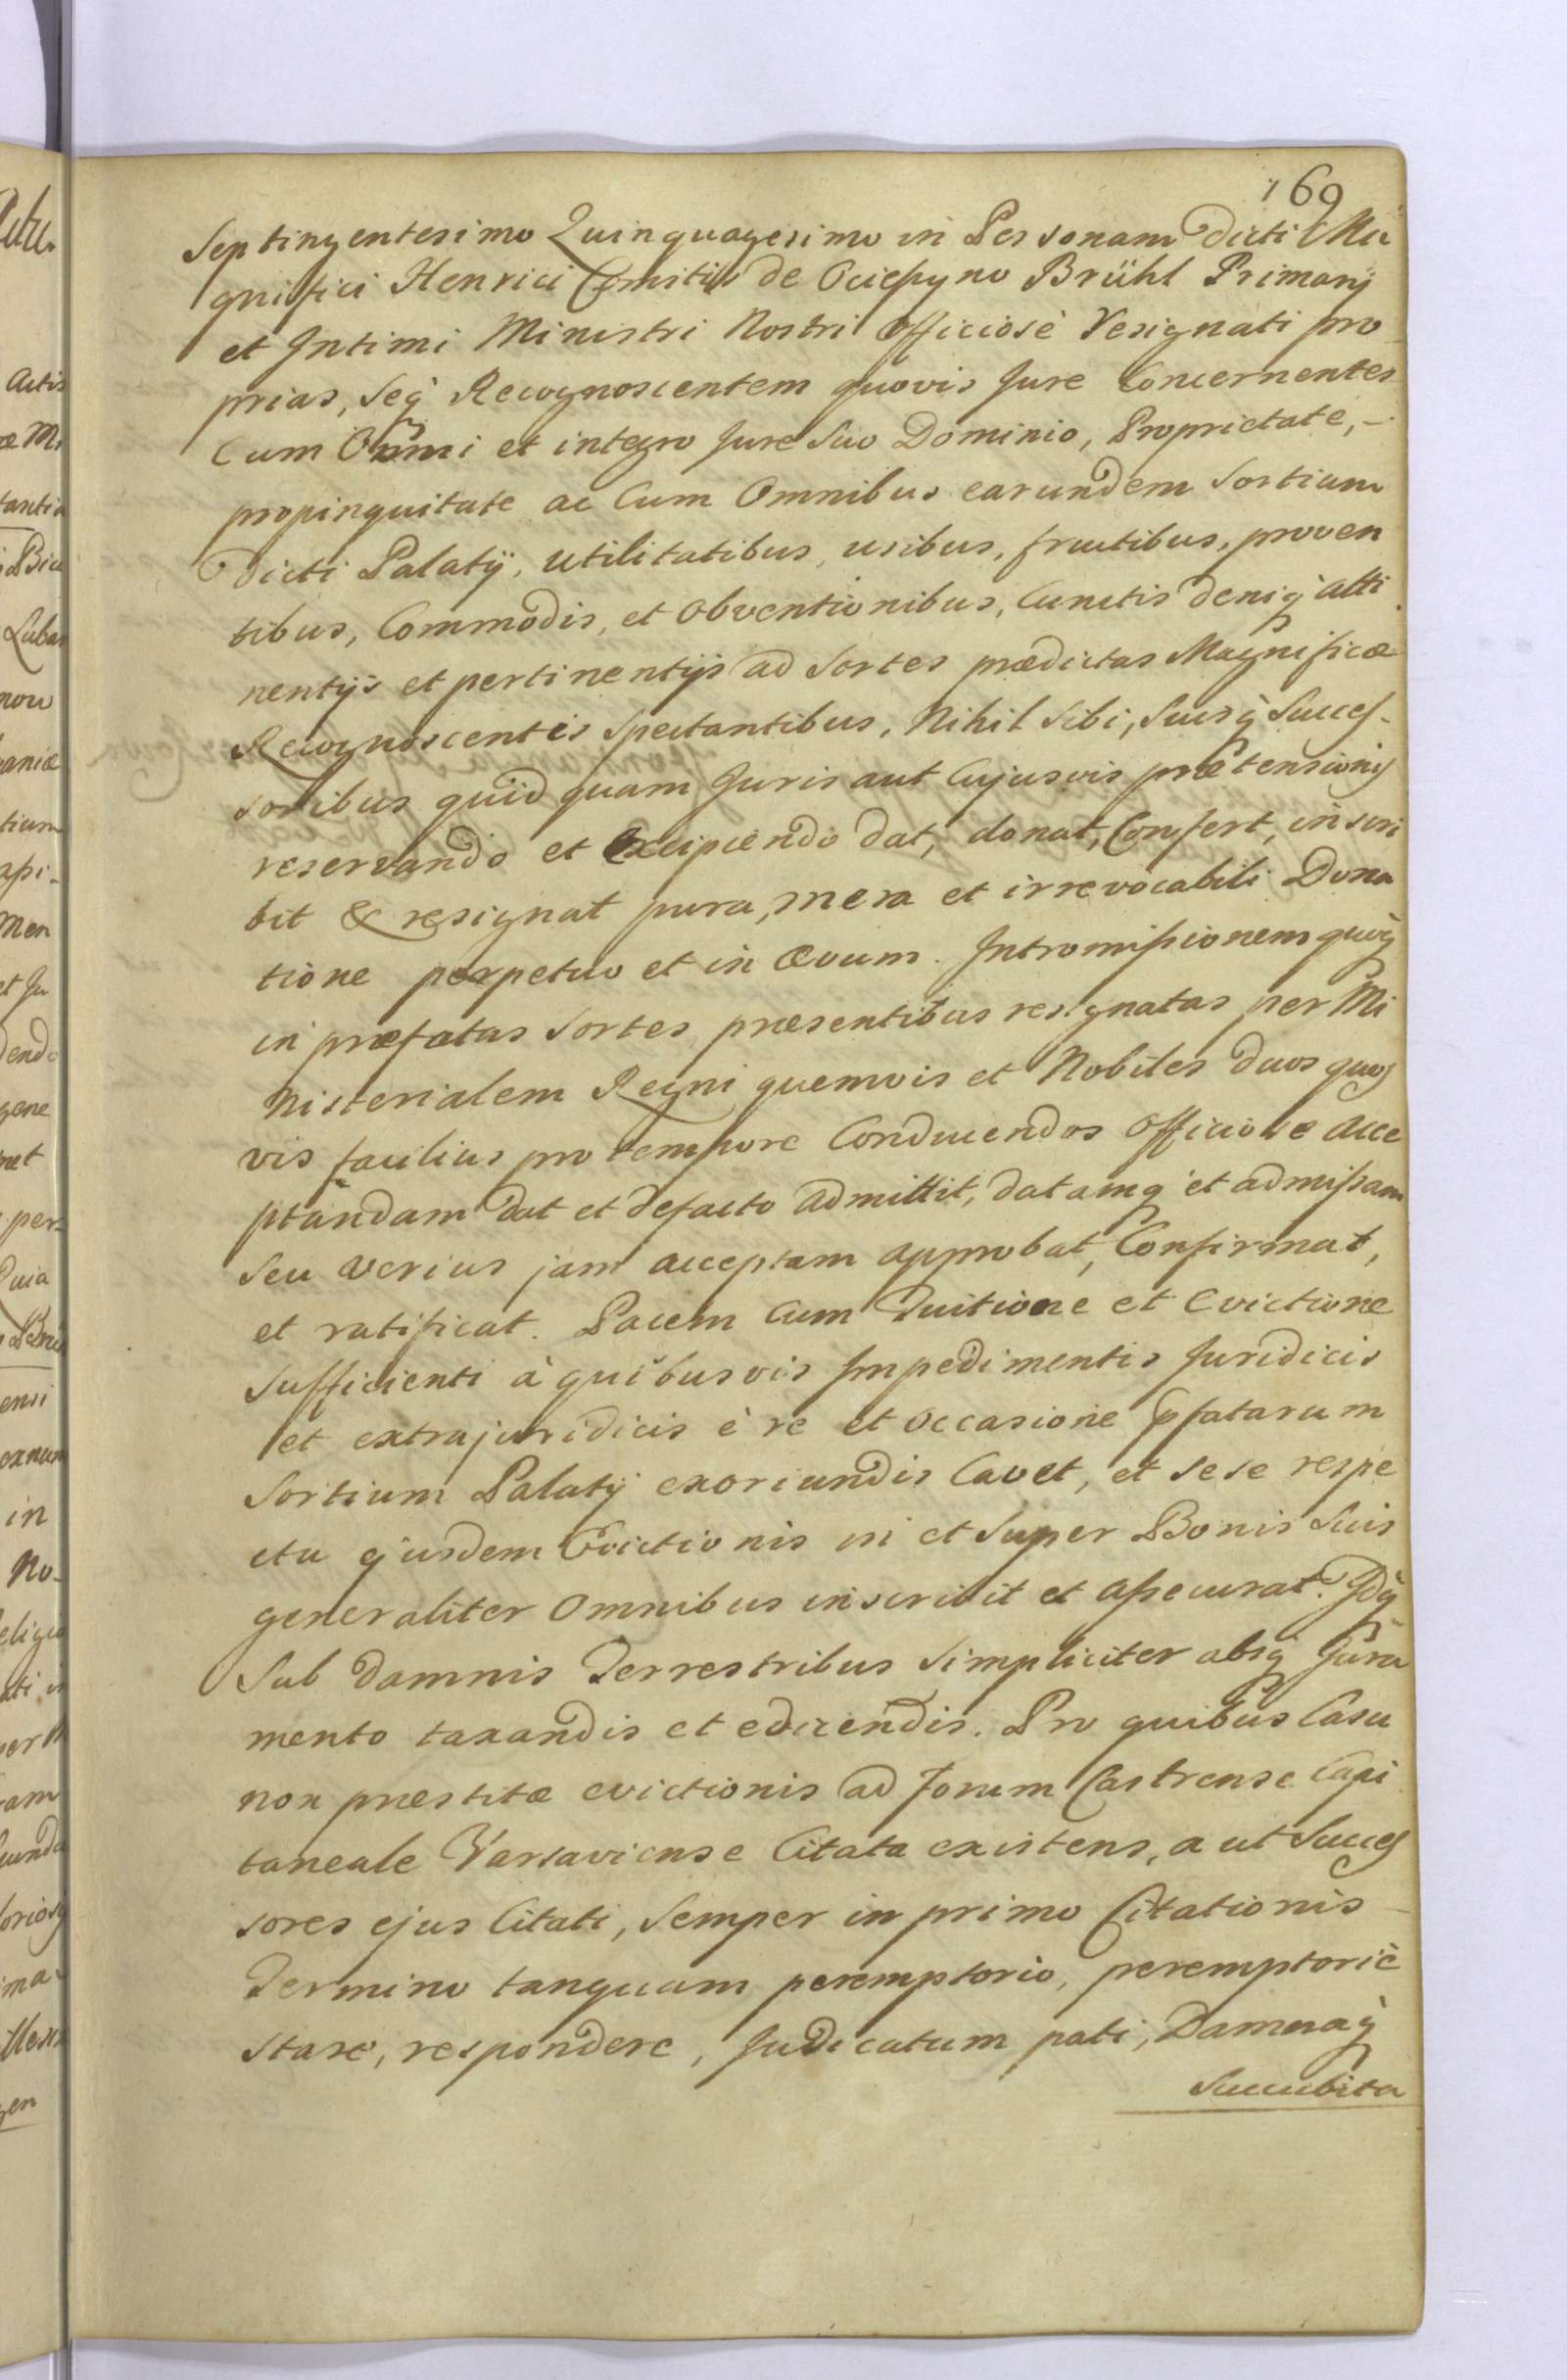 169
Septingentesimo Quinquagesimo in Personam Dicti Ma
gnifici Henrici Comitis de Ocieszyno Brühl Primarÿ
et Intimi Ministri Nostri Officiosè Resignati pro
prias, seq̀ Recognoscentem quovis Jure Concernentes
Cum Omni et integro Jure Suo Dominio, Proprietate, –
propinquitate ac Cum Omnibus earundem Sortium
Dicti Palatÿ, utilitatibus, usibus, fructibus, proven
tibus, Commodis, et Obventionibus, Cunctis deniq̀ atti
nentÿs et pertinentÿs ad Sortes prædictas Magnificæ
Recognoscentis Spectantibus, Nihil Sibi, Suisq̀ Succes-
soribus quid quam Juris aut Cujusvis prætensionis
reservando et Excipiendo dat, donat, Confert, inscri
bit & resignat pura, mera et irrevocabili Dona
tione perpetuo et in Ævum. Intromissionem quoq̀
in præfatas Sortes præsentibus resignatas per Mi
nisterialem Regni quemvis et Nobiles Duos quos
vis facilius pro tempore Conducendos Officiose acce
ptandam dat et defacto admittit, datamq̀ et admissam
seu verius jam acceptam approbat, Confirmat,
et ratificat. Pacem Cum Tuitione et Evictione
Sufficienti à quibusvis Impedimentis Juridicis
et extrajuridicis è re et occasione pfatarum
Sortium Palatÿ exoriundis Cavet, et sese respe
ctu ejusdem Evictionis in et Super Bonis Suis
generaliter Omnibus inscribit et assecurat. Idq̀
Sub Damnis Terrestribus Simpliciter absq̀ Jura
mento taxandis et edicendis. Pro quibus Casu
non præstitæ evictionis ad forum Castrense Capi
taneale Varsaviense Citata existens, aut Succes
sores ejus Citati, Semper in primo Citationis
Termino tanquam peremptorio, peremptoriè
stare, respondere, Judicatum pati, Damnaq̀
Succubita